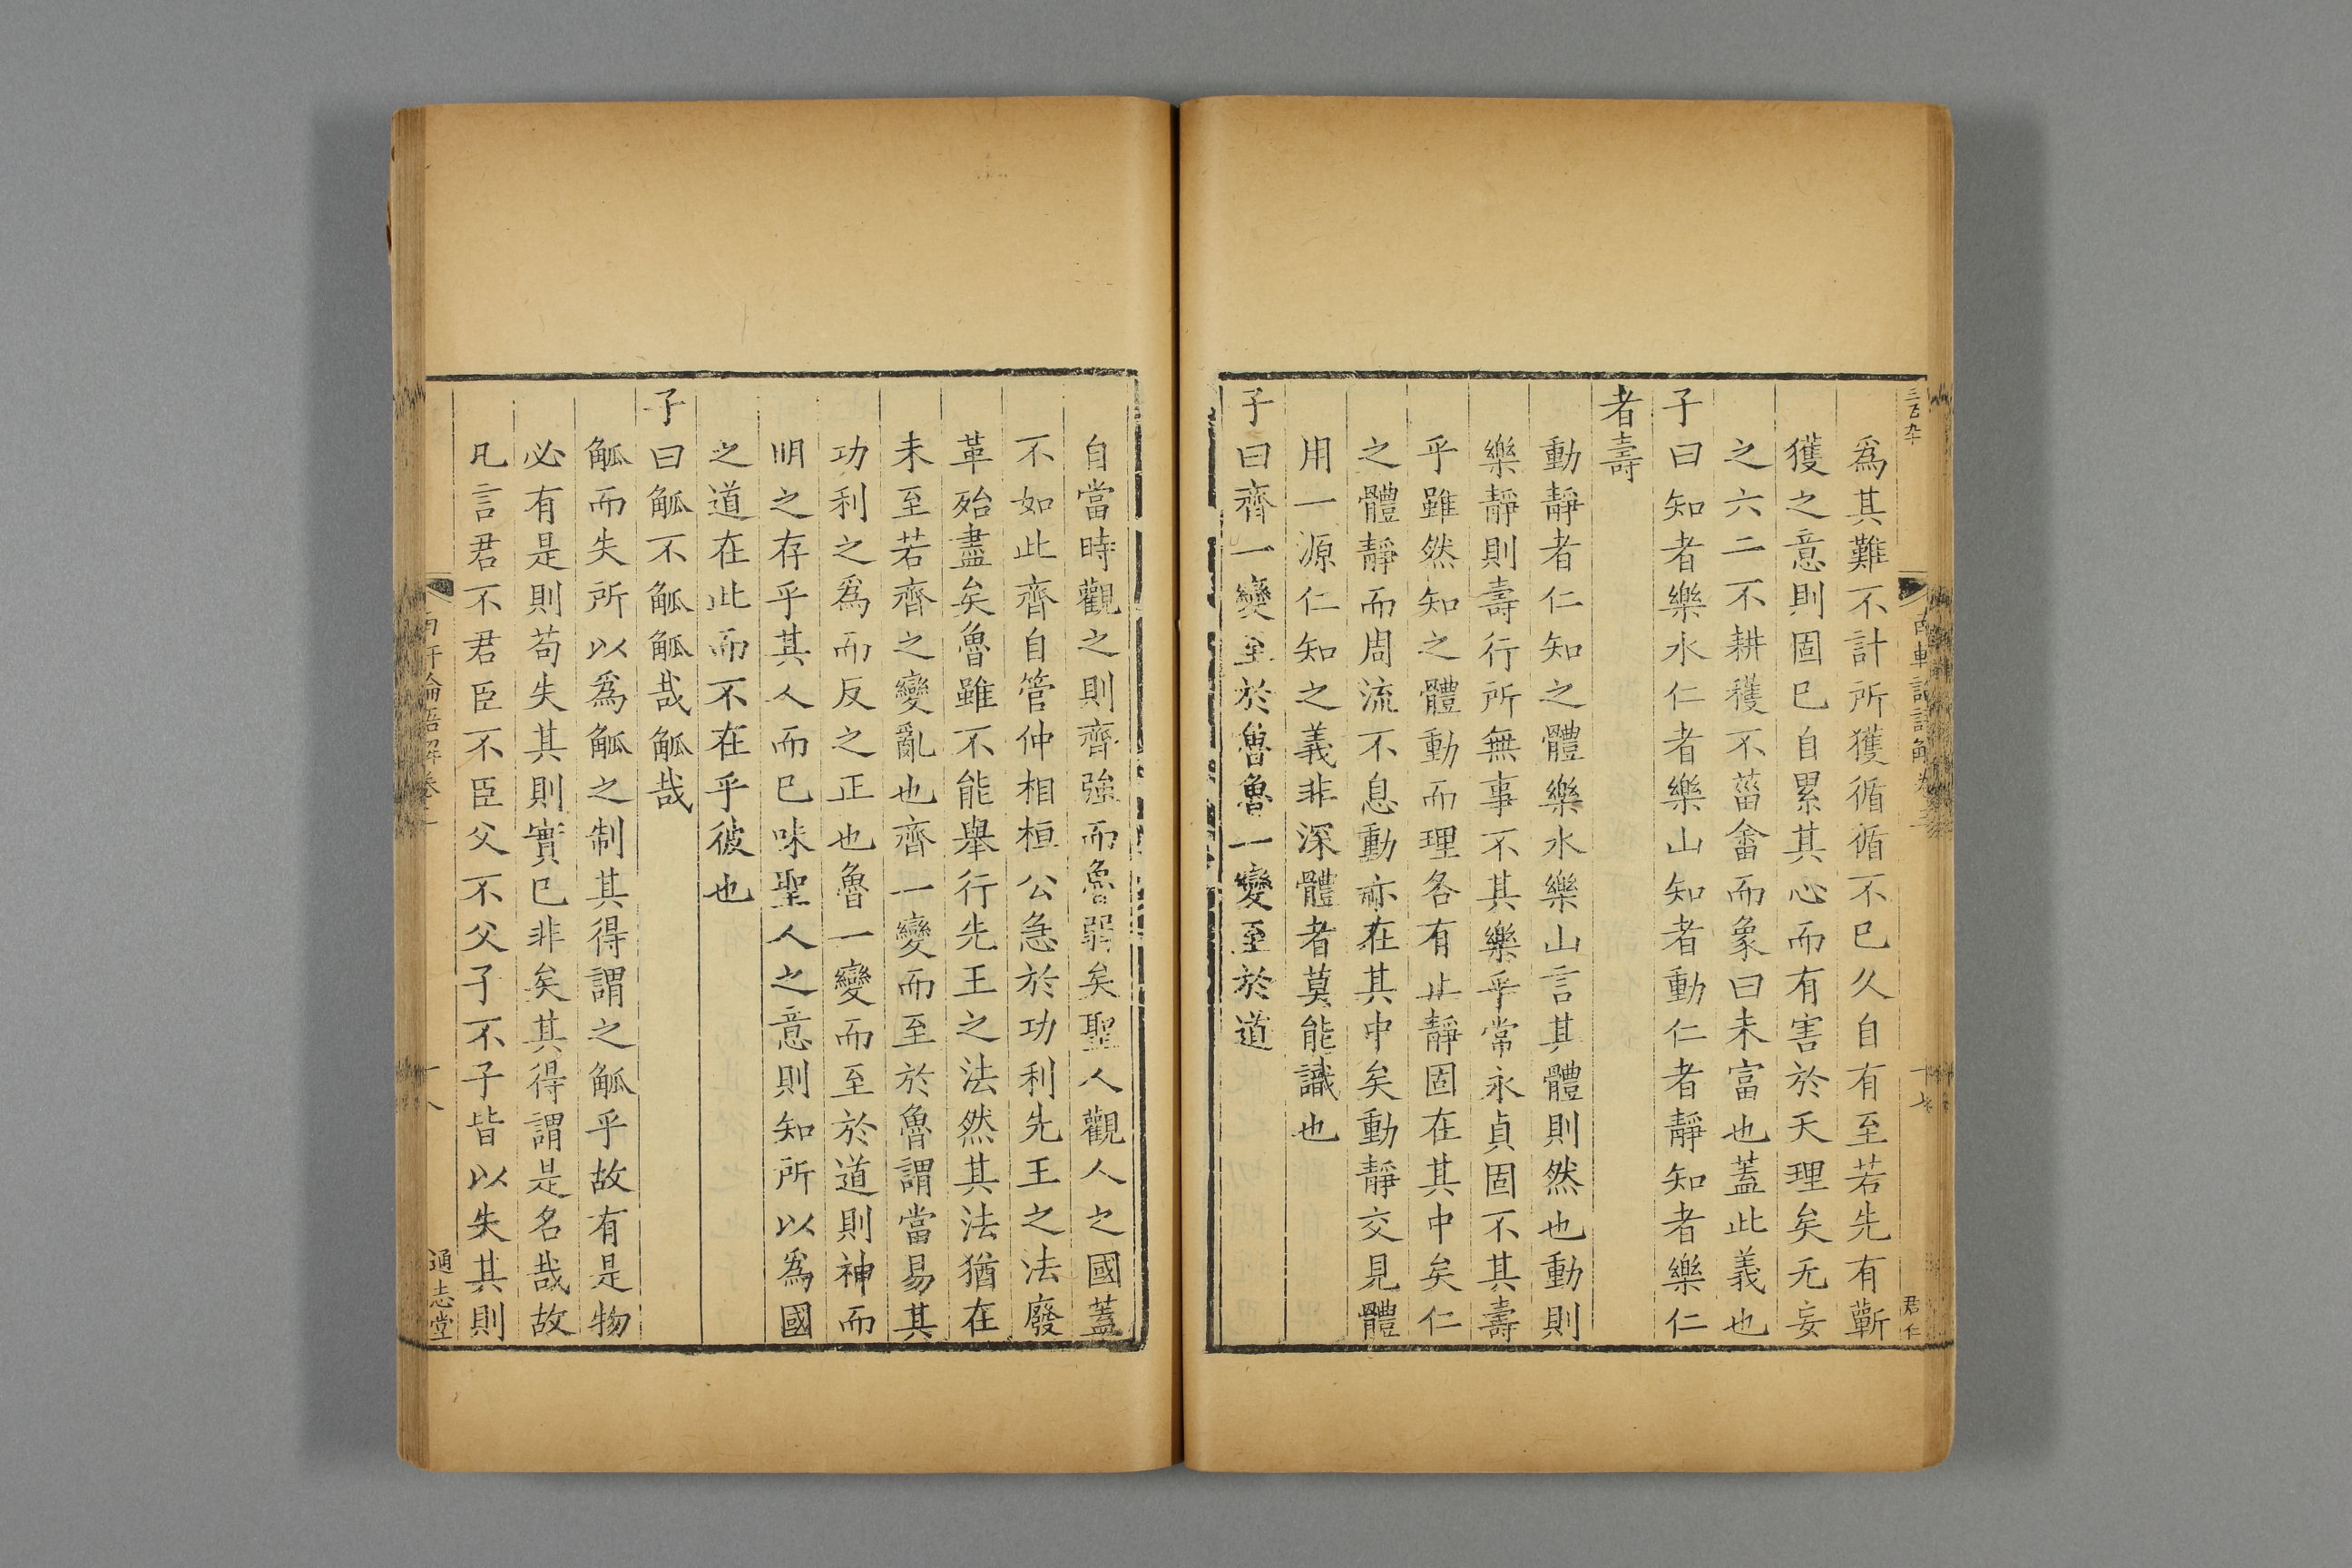 三百九十
君仁
爲其難不計所獲循循不已久自有至若先有蘄
獲之意則固已自累其心而有害於天理矣无妄
之六二不耕穫不菑畬而象曰未富也蓋此義也
子曰知者樂水仁者樂山知者動仁者靜知者樂仁
者壽
動靜者仁知之體樂水樂山言其體則然也動則
樂靜則壽行所無事不其樂乎常永貞固不其壽
乎雖然知之體動而理各有止靜固在其中矣仁
之體靜而周流不息動亦在其中矣動靜交見體
用一源仁知之義非深體者莫能識也
子曰齊一變至於魯魯一變至於道
自當時觀之則齊強而魯弱矣聖人觀人之國蓋
不如此齊自管仲相桓公急於功利先王之法廢
革殆盡矣魯雖不能舉行先王之法然其法猶在
未至若齊之變亂也齊一變而至於魯謂當易其
功利之爲而反之正也魯一變而至於道則神而
明之存乎其人而已味聖人之意則知所以爲國
之道在此而不在乎彼也
子曰觚不觚觚哉觚哉
觚而失所以爲觚之制其得謂之觚乎故有是物
必有是則苟失其則實已非矣其得謂是名哉故
凡言君不君臣不臣父不父子不子皆以失其則
論語解卷
十八
通志堂